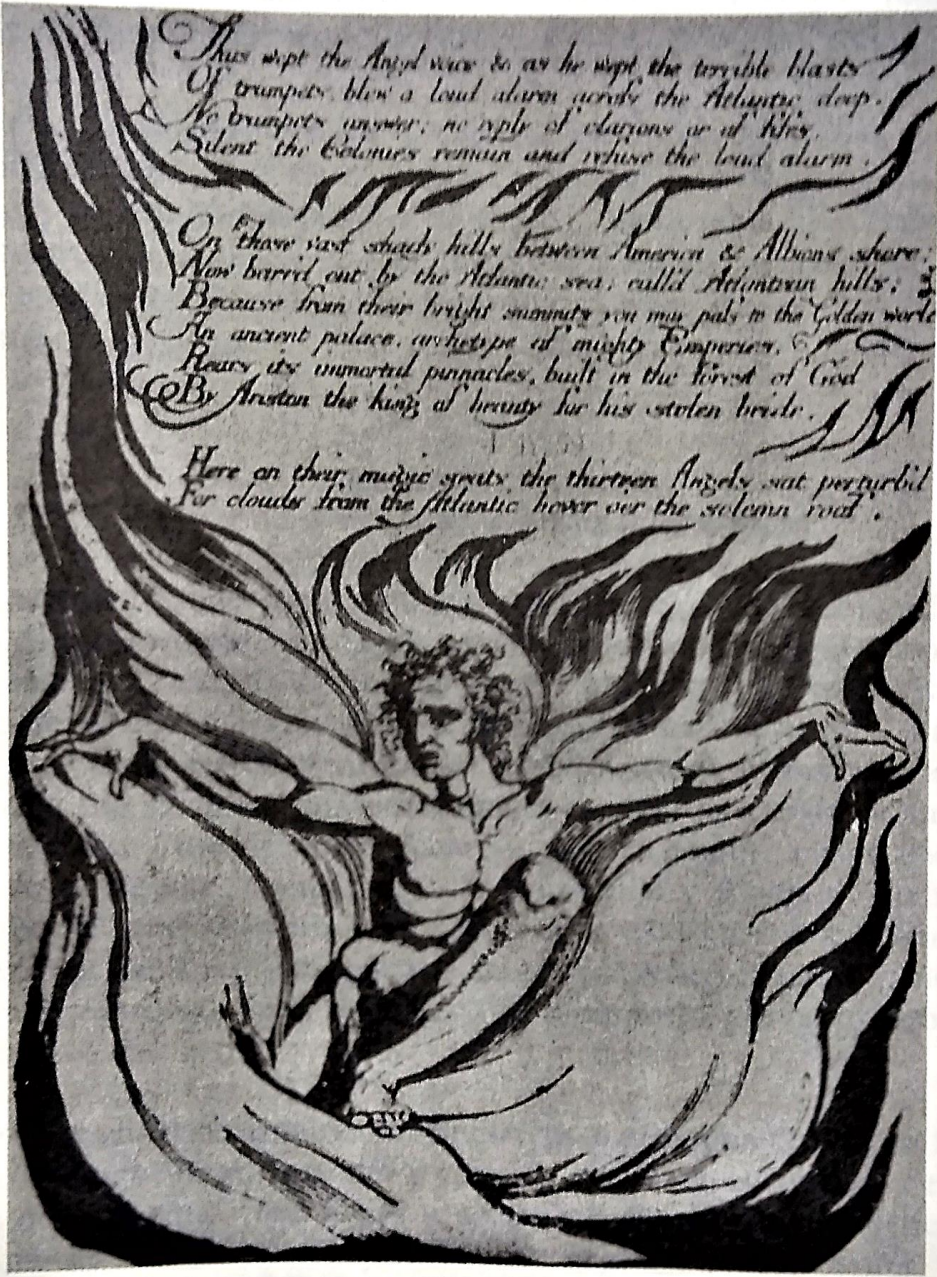 Thus wept the Angel voice & as he wept the terrible blasts
Of trumpets, blew a loud alarm across the Atlantic deep.
No trumpets answer; no reply of clarions or of fifes,
Silent the Colonies remain and refuse the loud alarm.
On those vast shady hills between America & Albions shore;
Now barr'd out by the Atlantic sea: call'd Atlantean hills:
Because from their bright summits you may pass to the Golden world
An ancient palace, archetype of mighty Emperies,
Rears its immortal pinnacles, built in the forest of God
By Ariston the king of beauty for his stolen bride.
Here on their magic seats the thirteen Angels sat perturb'd
For clouds from the Atlantic hover oer the solemn roof.